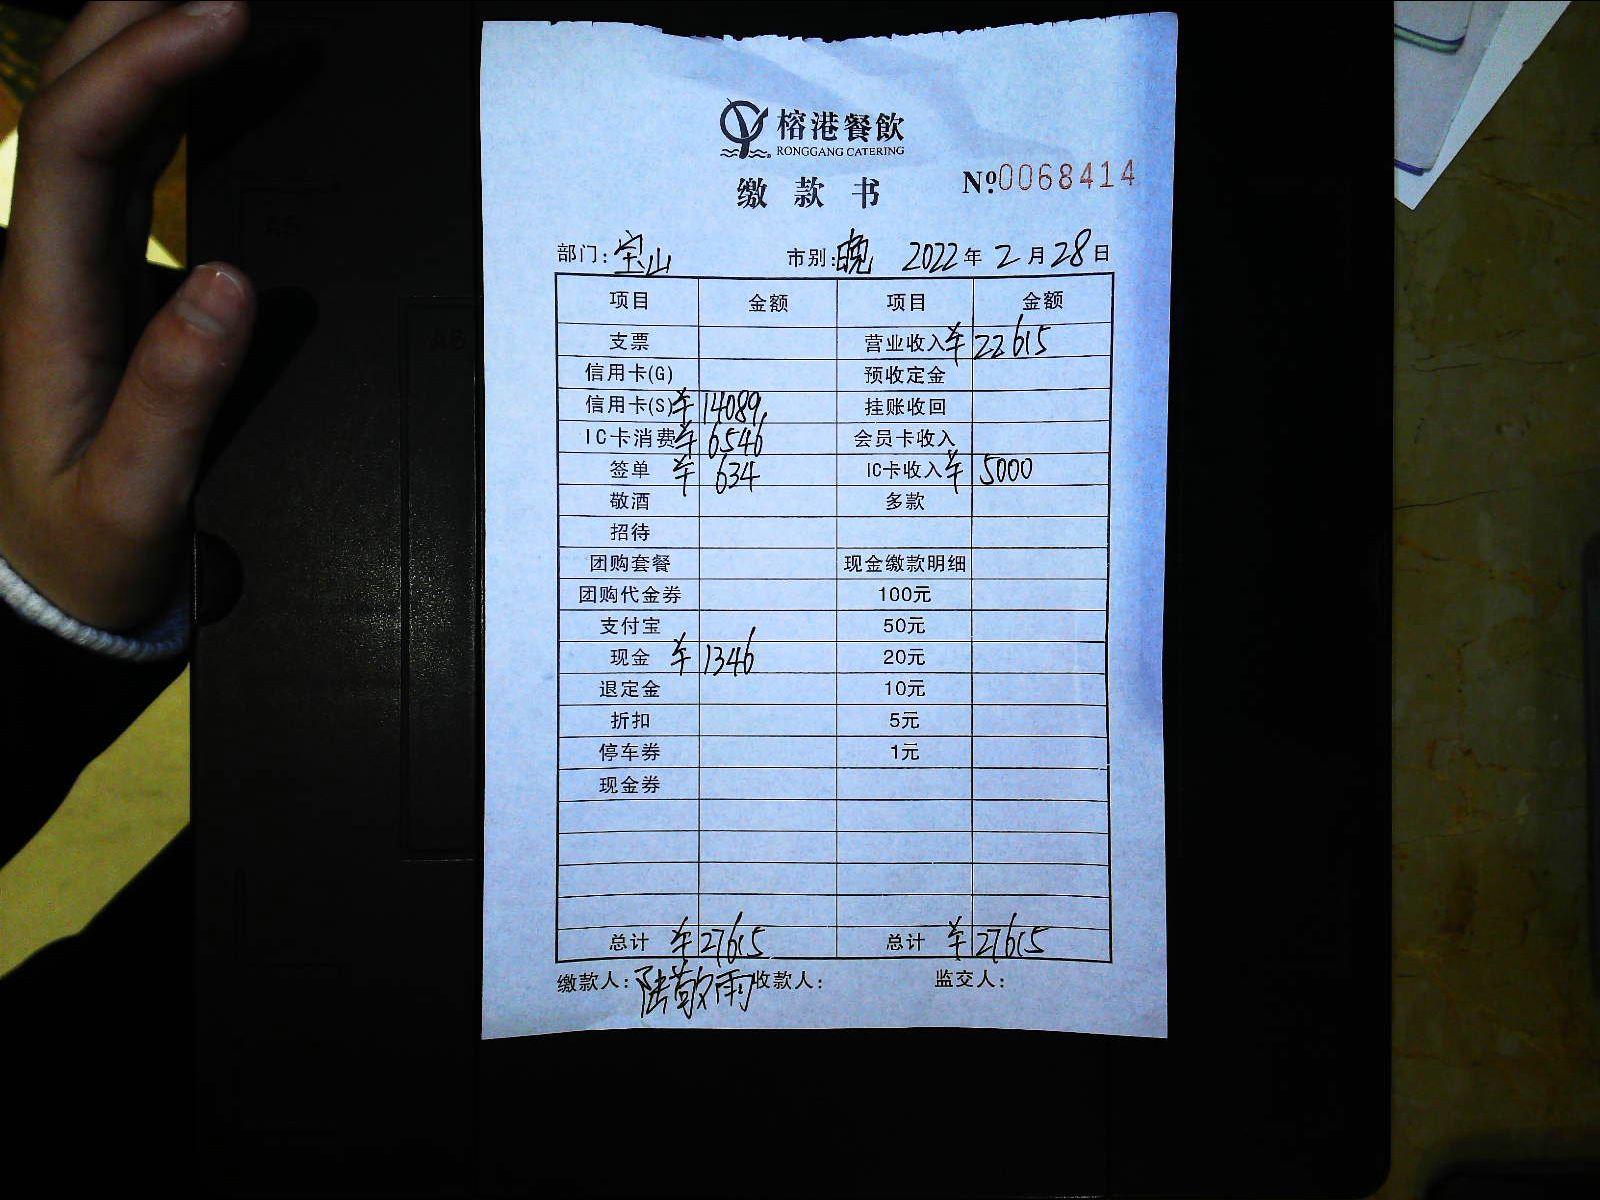 榕港餐飲
RONGGANG CATERING
缴款书 №0068414
部门:宝山 市别:晚 2022年2月28日
项目 金额 项目 金额
支票 营业收入 ¥22615
信用卡(G) 预收定金
信用卡(S) ¥14089 挂账收回
IC卡消费 ¥6546 会员卡收入
签单 ¥634 IC卡收入 ¥5000
敬酒 多款
招待
团购套餐 现金缴款明细
团购代金券 100元
支付宝 50元
现金 ¥1346 20元
退定金 10元
折扣 5元
停车券 1元
现金券
总计 ¥27615 总计 ¥27615
缴款人:陆敬雨 收款人: 监交人: